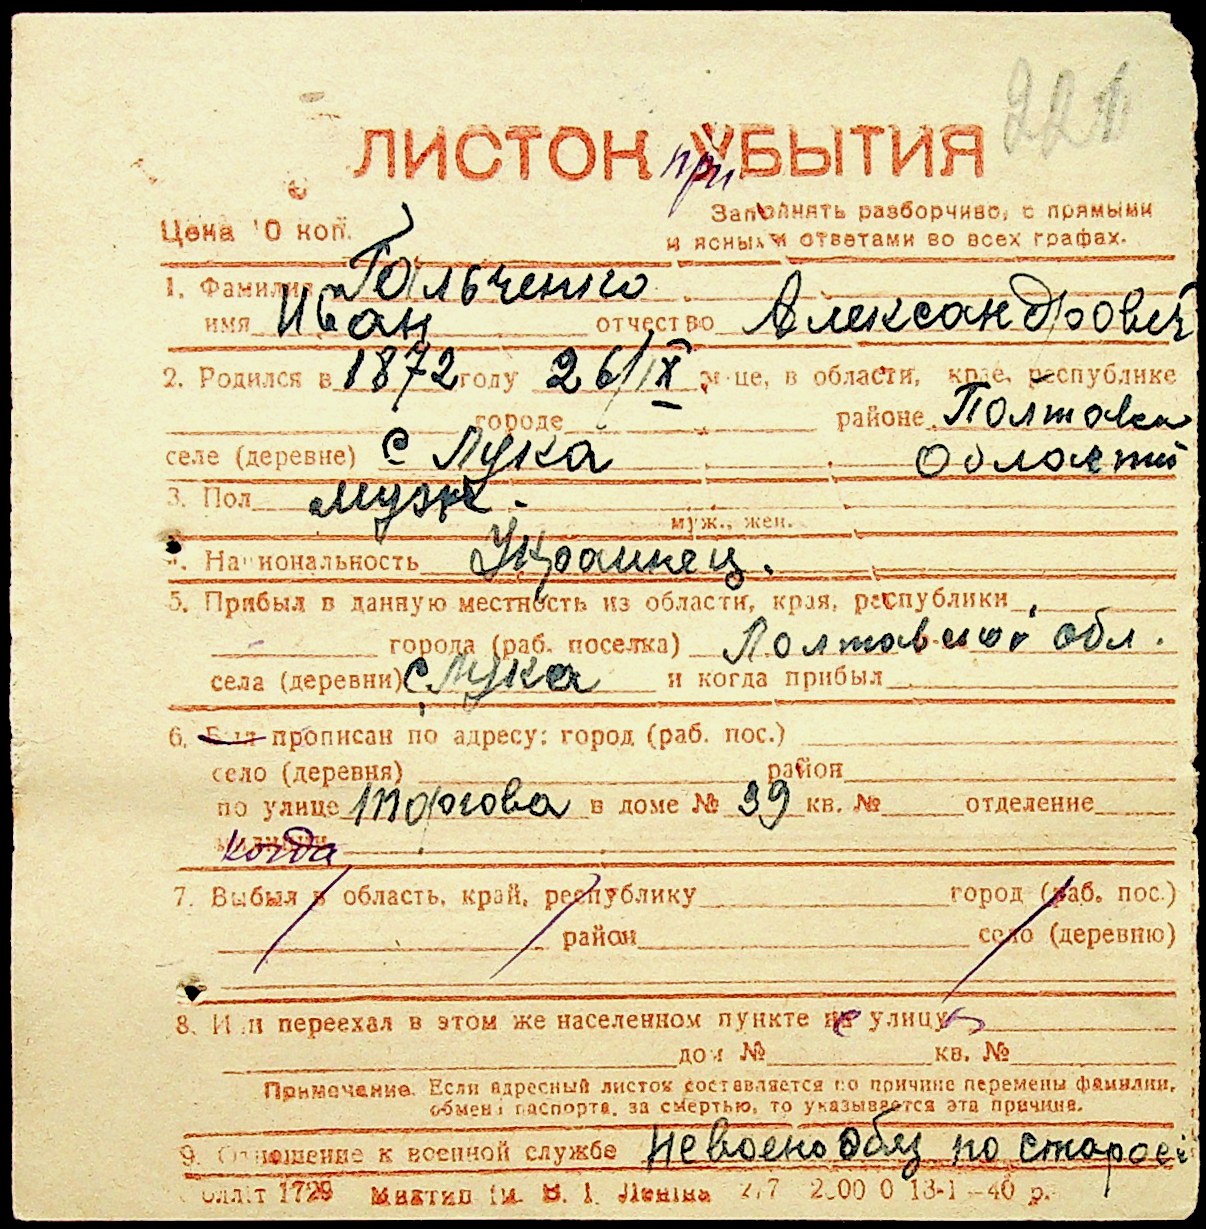 221
ЛИСТОК УБЫТИЯ
при
Цена 10 коп.
Заполнять разборчиво, с прямыми
и ясными ответами во всех графах.
1. Фамилия Гольченко
имя Иван отчество Александрович
2. Родился в 1872 году 26/IX м-це, в области, крае, республике
городе районе Полтавск
селе (деревне) с Лука Области
3. Пол муж.
муж., жен.
4. Национальность Украинец.
5. Прибыл в данную местность из области, края, республики
города (раб. поселка) Полтавской обл.
села (деревни) с Лука и когда прибыл
6. Был прописан по адресу: город (раб. пос.)
село (деревня) район
по улице Торгова в доме № 39 кв. № отделение
милиции когда
7. Выбыл в область, край, республику город (раб. пос.)
район село (деревню)
8. Или переехал в этом же населенном пункте на улицу
дом № кв. №
Примечание. Если адресный листок составляется по причине перемены фамилии,
обмена паспорта, за смертью, то указывается эта причина.
9. Отношение к военной службе Невоенообяз по старос
1729 ім. В. І. Леніна 2000 0 13-1-40 р.